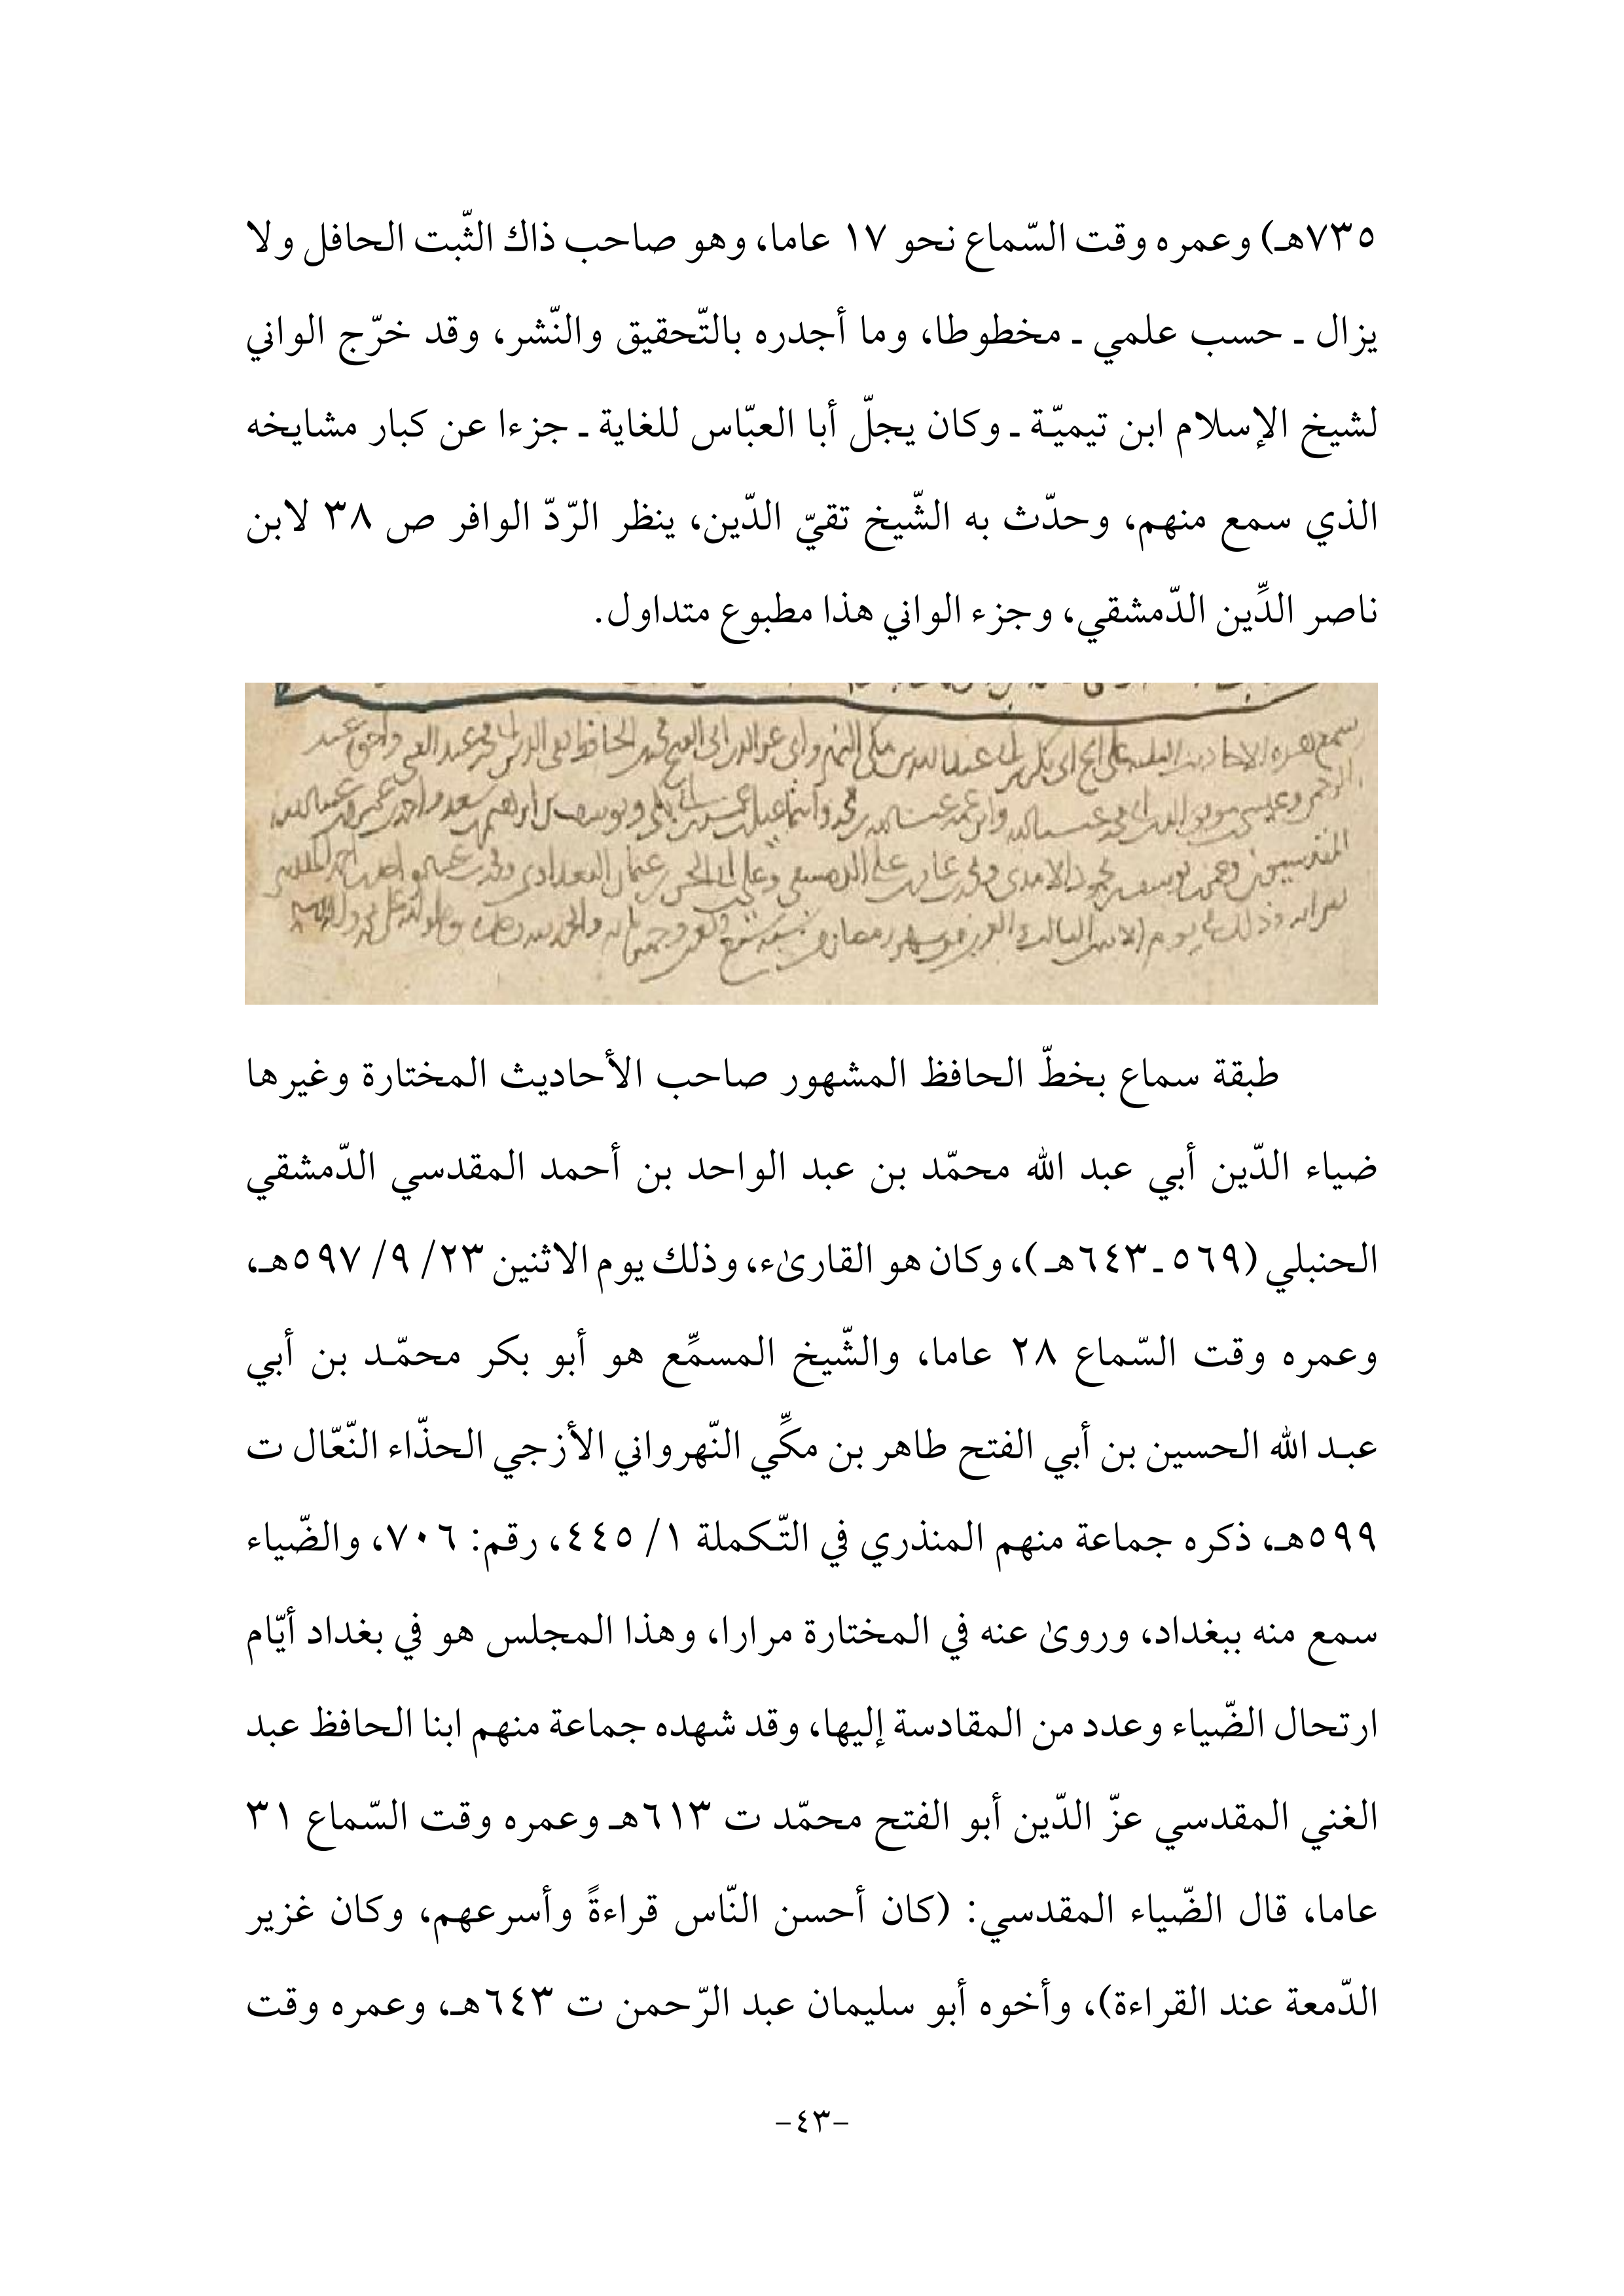 ٧٣٥هـ) وعمره وقت السّماع نحو ١٧ عاما، وهو صاحب ذاك الثّبت الحافل ولا
يزال ـ حسب علمي ـ مخطوطا، وما أجدره بالتّحقيق والنّشر، وقد خرّج الواني
لشيخ الإسلام ابن تيميّة ـ وكان يجلّ أبا العبّاس للغاية ـ جزءا عن كبار مشايخه
الذي سمع منهم، وحدّث به الشّيخ تقيّ الدّين، ينظر الرّدّ الوافر ص ٣٨ لابن
ناصر الدِّين الدّمشقي، وجزء الواني هذا مطبوع متداول.
طبقة سماع بخطّ الحافظ المشهور صاحب الأحاديث المختارة وغيرها
ضياء الدّين أبي عبد الله محمّد بن عبد الواحد بن أحمد المقدسي الدّمشقي
الحنبلي (٥٦٩ـ٦٤٣هـ)، وكان هو القارىٰء، وذلك يوم الاثنين ٢٣/ ٩/ ٥٩٧هـ،
وعمره وقت السّماع ٢٨ عاما، والشّيخ المسمِّع هو أبو بكر محمّد بن أبي
عبد الله الحسين بن أبي الفتح طاهر بن مكِّي النّهرواني الأزجي الحذّاء النّعّال ت
٥٩٩هـ، ذكره جماعة منهم المنذري في التّكملة ١/ ٤٤٥، رقم: ٧٠٦، والضّياء
سمع منه ببغداد، وروىٰ عنه في المختارة مرارا، وهذا المجلس هو في بغداد أيّام
ارتحال الضّياء وعدد من المقادسة إليها، وقد شهده جماعة منهم ابنا الحافظ عبد
الغني المقدسي عزّ الدّين أبو الفتح محمّد ت ٦١٣هـ وعمره وقت السّماع ٣١
عاما، قال الضّياء المقدسي: (كان أحسن النّاس قراءةً وأسرعهم، وكان غزير
الدّمعة عند القراءة)، وأخوه أبو سليمان عبد الرّحمن ت ٦٤٣هـ، وعمره وقت
-٤٣-